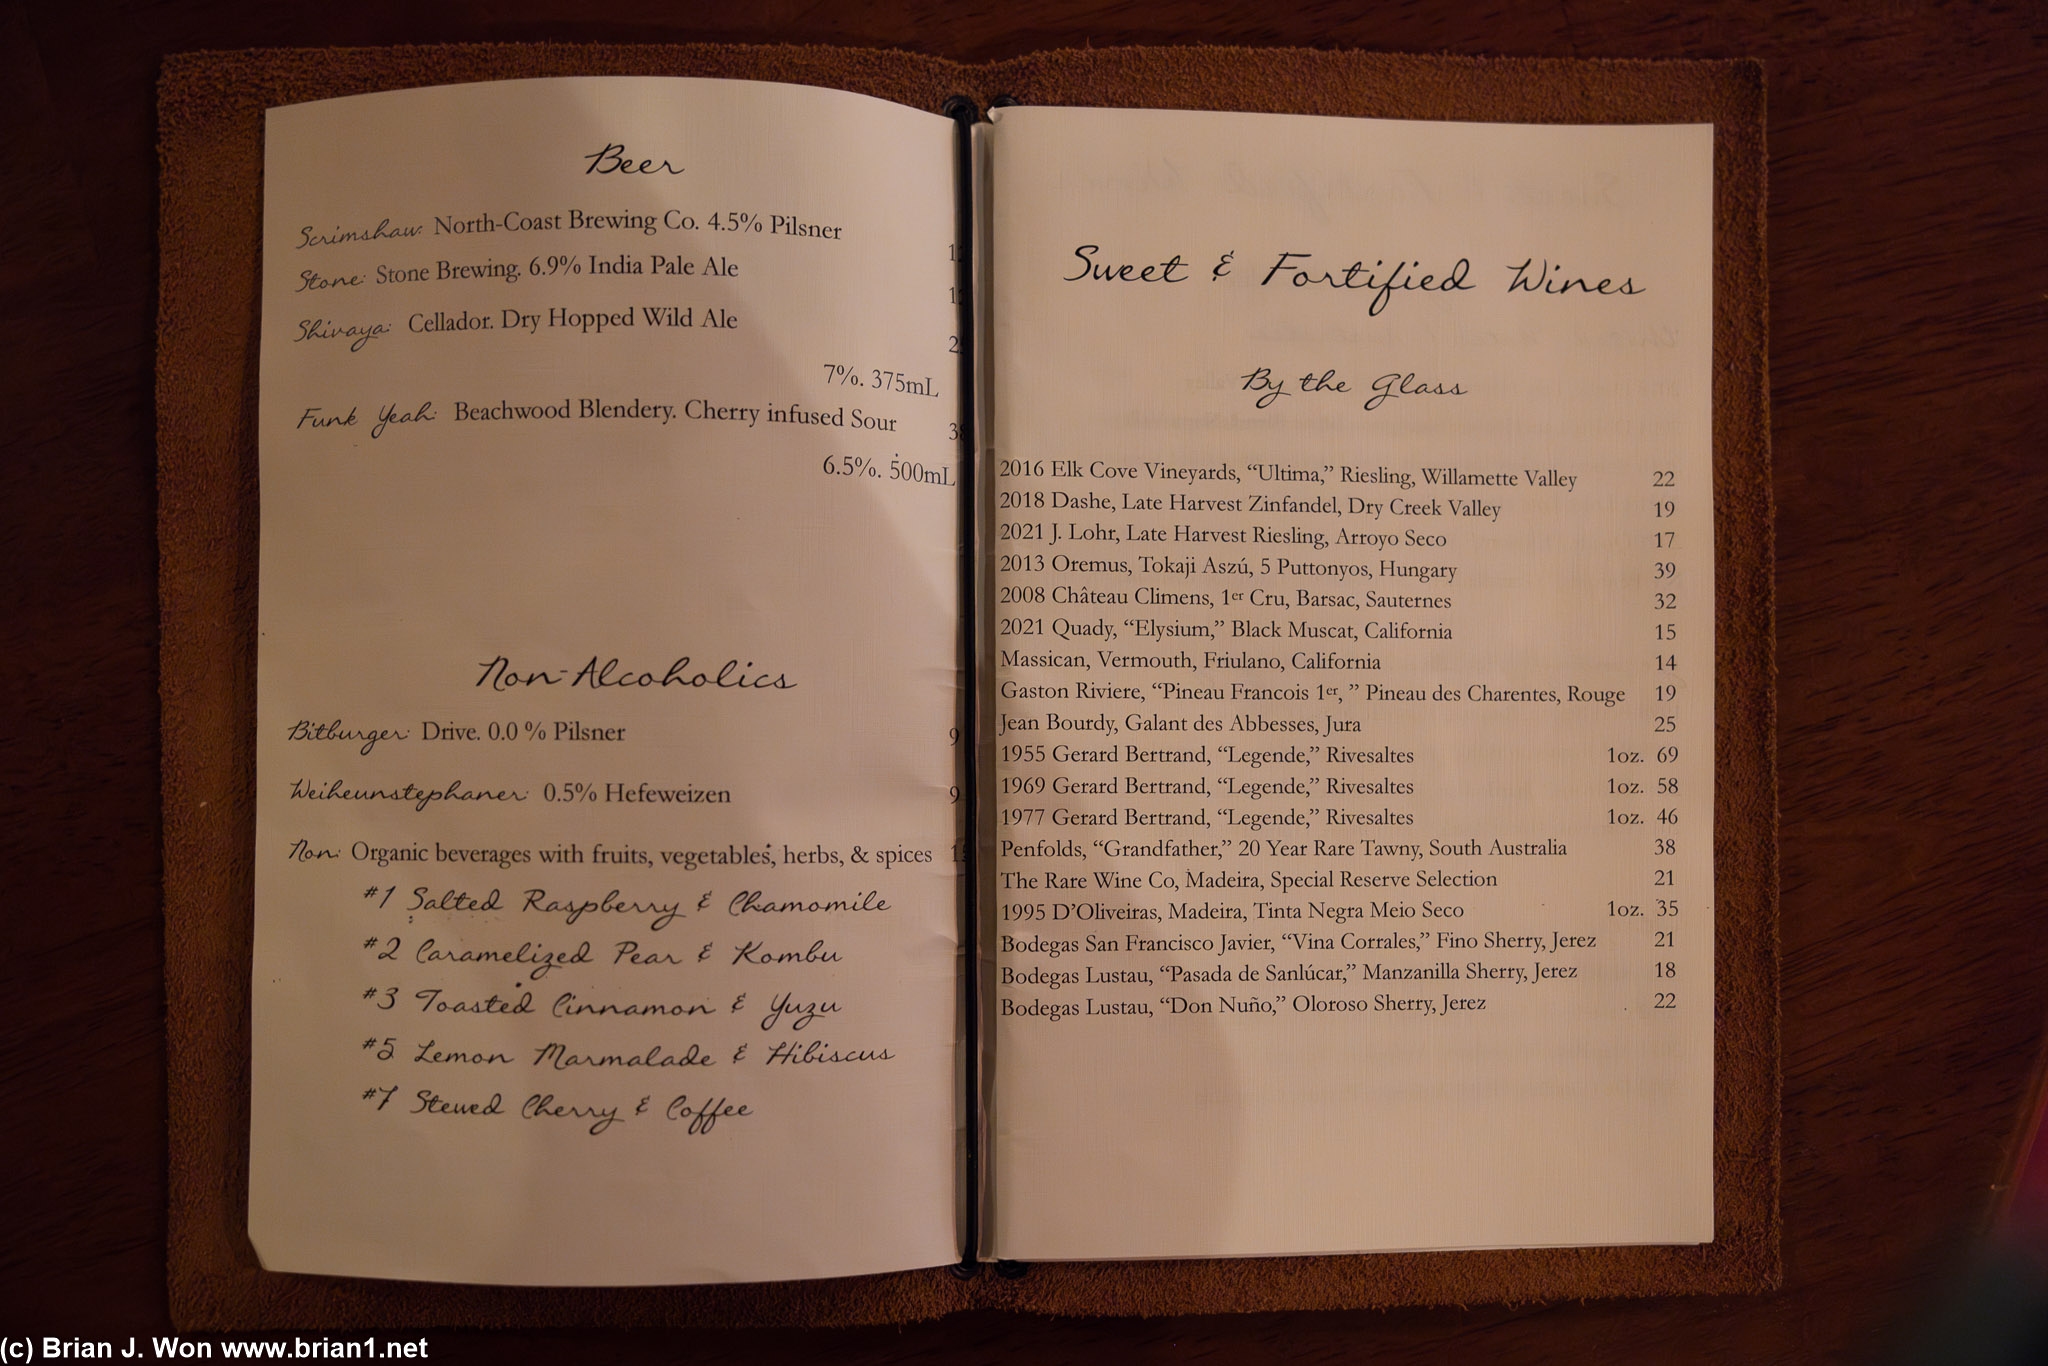 Beer
Scrimshaw: North-Coast Brewing Co. 4.5% Pilsner
Stone: Stone Brewing. 6.9% India Pale Ale
Shivaya: Cellador. Dry Hopped Wild Ale
7%. 375mL
Funk Yeah: Beachwood Blendery. Cherry infused Sour
6.5%. 500mL
Non-Alcoholics
Bitburger: Drive. 0.0 % Pilsner 9
Weiheunstephaner: 0.5% Hefeweizen 9
Non: Organic beverages with fruits, vegetables, herbs, & spices
#1 Salted Raspberry & Chamomile
#2 Caramelized Pear & Kombu
#3 Toasted Cinnamon & Yuzu
#5 Lemon Marmalade & Hibiscus
#7 Stewed Cherry & Coffee
Sweet & Fortified Wines
By the Glass
2016 Elk Cove Vineyards, “Ultima,” Riesling, Willamette Valley 22
2018 Dashe, Late Harvest Zinfandel, Dry Creek Valley 19
2021 J. Lohr, Late Harvest Riesling, Arroyo Seco 17
2013 Oremus, Tokaji Aszú, 5 Puttonyos, Hungary 39
2008 Château Climens, 1er Cru, Barsac, Sauternes 32
2021 Quady, “Elysium,” Black Muscat, California 15
Massican, Vermouth, Friulano, California 14
Gaston Riviere, “Pineau Francois 1er, ” Pineau des Charentes, Rouge 19
Jean Bourdy, Galant des Abbesses, Jura 25
1955 Gerard Bertrand, “Legende,” Rivesaltes 1oz. 69
1969 Gerard Bertrand, “Legende,” Rivesaltes 1oz. 58
1977 Gerard Bertrand, “Legende,” Rivesaltes 1oz. 46
Penfolds, “Grandfather,” 20 Year Rare Tawny, South Australia 38
The Rare Wine Co, Madeira, Special Reserve Selection 21
1995 D’Oliveiras, Madeira, Tinta Negra Meio Seco 1oz. 35
Bodegas San Francisco Javier, “Vina Corrales,” Fino Sherry, Jerez 21
Bodegas Lustau, “Pasada de Sanlúcar,” Manzanilla Sherry, Jerez 18
Bodegas Lustau, “Don Nuño,” Oloroso Sherry, Jerez 22
(c) Brian J. Won www.brian1.net